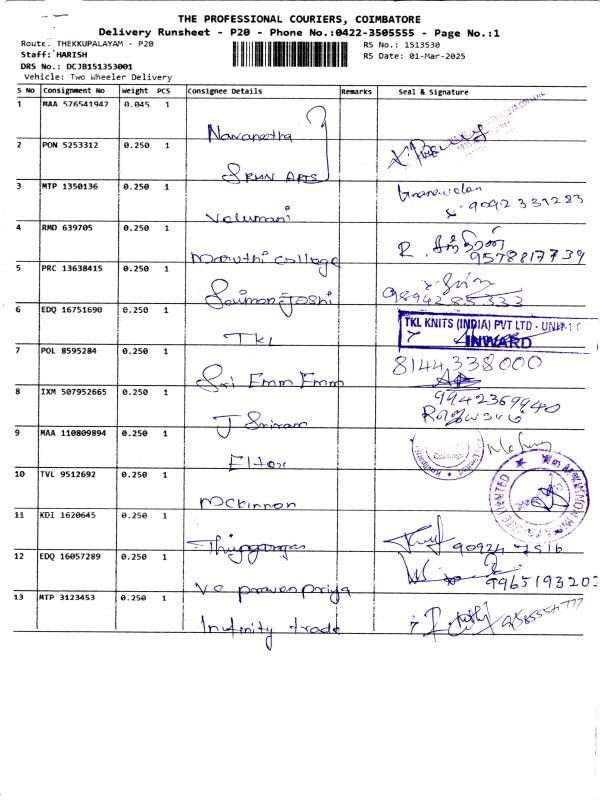 THE PROFESSIONAL COURIERS, COIMBATORE
Delivery Runsheet - P20 - Phone No.:0422-3505555 - Page No.:1
Route: THEKKUPALAYAM - P20
RS No.: 1513530
Staff: HARISH
RS Date: 01-Mar-2025
DRS No.: DCJB151353001
Vehicle: Two Wheeler Delivery
S No Consignment No Weight PCS Consignee Details Remarks Seal & Signature
1 MAA 576541942 0.045 1 Navaneetha
2 PON 5253312 0.250 1 SRMN ARTS
3 MTP 1350136 0.250 1 Velumani 9092331283
4 RMD 639705 0.250 1 Maruthi College R. 9578817739
5 PRC 13638415 0.250 1 Saimon Joshi 9894285333
6 EDQ 16751690 0.250 1 TKL TKL KNITS (INDIA) PVT LTD - UNIT-1
INWARD
7 POL 8595284 0.250 1 Sri Emm Emm 8144338000
8 IXM 507952665 0.250 1 J Sriram 9942369940
9 MAA 110809894 0.250 1 Eltex
10 TVL 9512692 0.250 1 Mckinnon
11 KDI 1620645 0.250 1
12 EDQ 16057289 0.250 1 VC praveen priya
13 MTP 3123453 0.250 1 Infinity trade